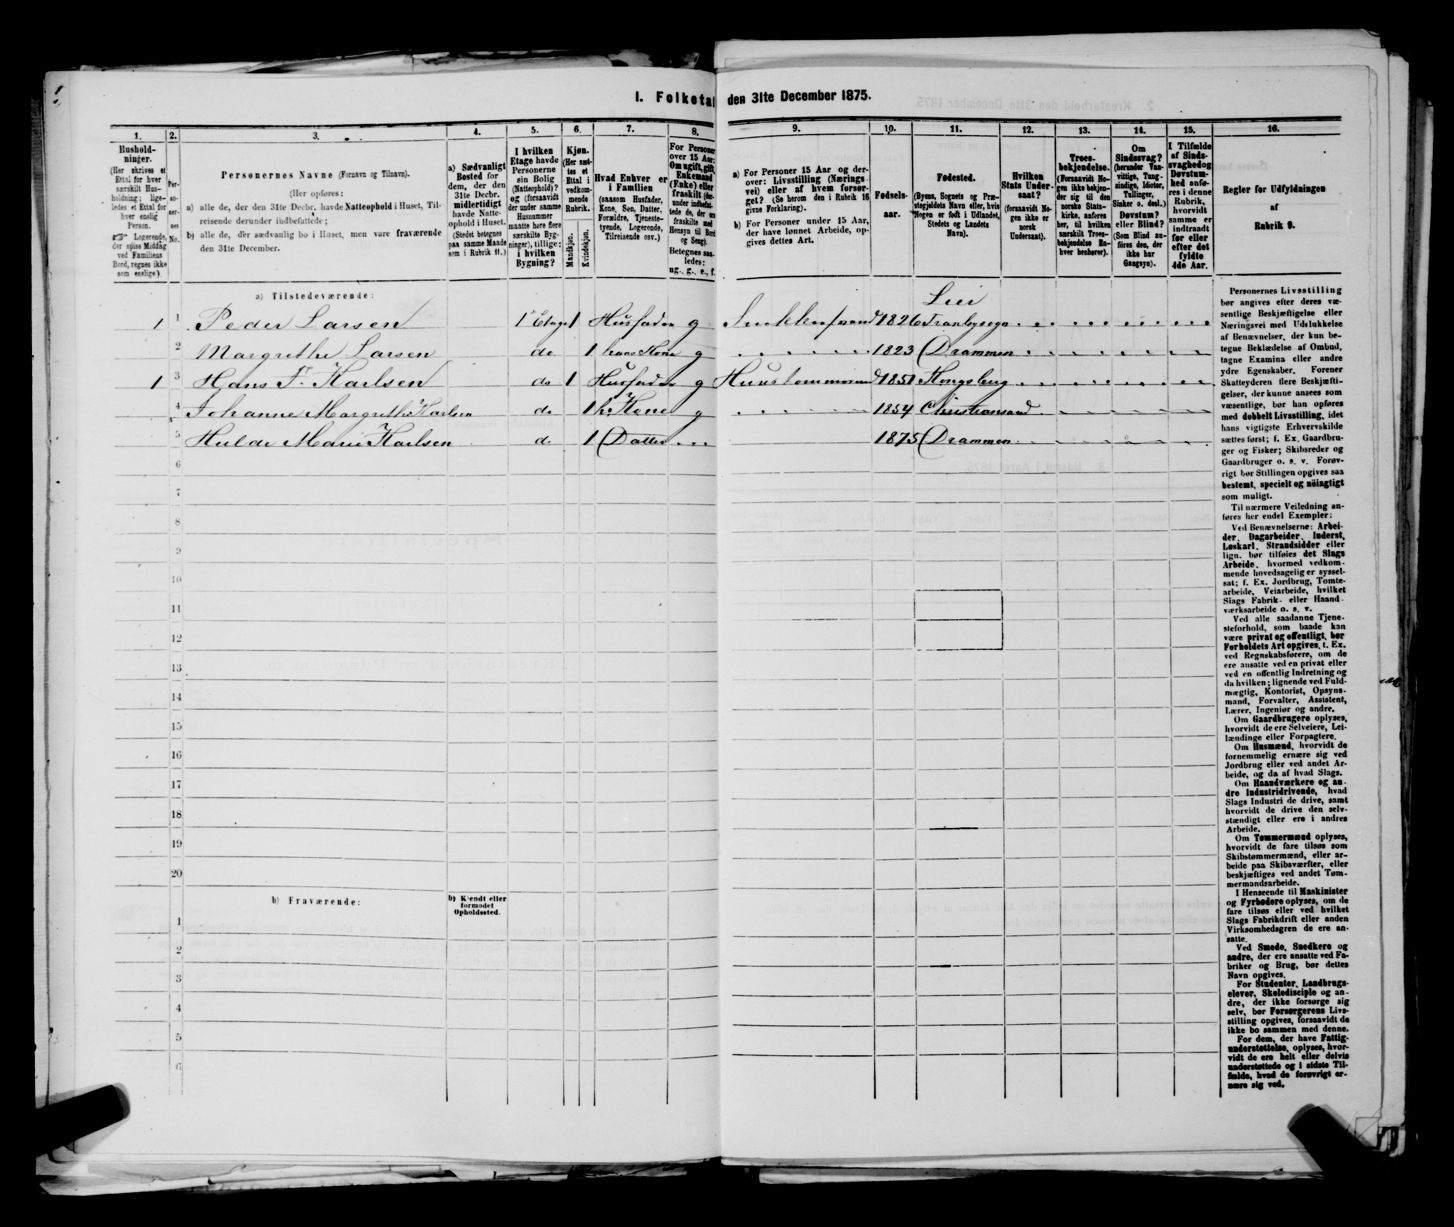 I. Folketal den 31te December 1875.
1. 2. 3. 4. 5. 6. 7. 8. 9. 10. 11. 12. 13. 14. 15. 16.
Hushold-
ninger.
(Her skrives et
Ettal for hver
særskilt Hus-
holdning; lige-
ledes et Ettal for
hver enslig
Person.
☞ Logerende,
der spise Middag
ved Familiens
Bord, regnes ikke
som enslige).
Per-
so-
ner-
nes
No.
Personernes Navne (Fornavn og Tilnavn).
(Her opføres:
a) alle de, der den 31te Decbr. havde Natteophold i Huset, Til-
reisende derunder indbefattede;
b) alle de, der sædvanlig bo i Huset, men vare fraværende
den 31te December.
a) Sædvanligt
Bosted for
dem, der den
31te Decbr.
midlertidigt
havde Natte-
ophold i Huset.
(Stedet betegnes
paa samme Maade
som i Rubrik 11.)
I hvilken
Etage havde
Personerne
sin Bolig
(Natteophold)?
og (forsaavidt
der under samme
Husnummer
maatte høre flere
særskilte Byg-
ninger), tillige:
i hvilken
Bygning?
Kjøn.
(Her sæt-
tes et
Ettal i
vedkom-
mende
Rubrik.
Mandkjøn.
Kvindekjøn.
Hvad Enhver er
i Familien
(saasom Husfader,
Kone, Søn, Datter,
Forældre, Tjeneste-
tyende, Logerende,
Tilreisende osv.)
For Personer
over 15 Aar:
Om ugift, gift,
Enkemand
(Enke) eller
fraskilt (der-
under indbefat-
tede de, der ere
fraskilte med
Hensyn til Bord
og Seng).
Betegnes saa-
ledes:
ug., g., e., f.
a) For Personer 15 Aar og der-
over: Livsstilling (Nærings-
vei) eller af hvem forsør-
get? (Se herom den i Rubrik 16
givne Forklaring).
b) For Personer under 15 Aar,
der have lønnet Arbeide, op-
gives dettes Art.
Fødsels-
aar.
Fødested.
(Byens, Sognets og Præ-
stegjeldets Navn eller, hvis
Nogen er født i Udlandet,
Stedets og Landets
Navn).
Hvilken
Stats Under-
saat?
(forsaavidt No-
gen ikke er
norsk
Undersaat).
Troes-
bekjendelse.
(Forsaavidt No-
gen ikke bekjen-
der sig til den
norske Stats-
kirke, anføres
her, til hvilken
særskilt Troes-
bekjendelse Ra-
hver henhører).
Om
Sindssvag?
(herunder Van-
vittige, Tung-
sindige, Idioter,
Tullinger,
Sinker o. desl.)
Døvstum?
eller Blind?
(Som Blind an-
føres den, der
ikke har
Gangsyn).
I Tilfælde
af Sinds-
svaghed og
Døvstum-
hed anfø-
res i denne
Rubrik,
hvorvidt
samme er
indtraadt
før eller
efter det
fyldte
4de Aar.
Regler for Udfyldningen
af
Rubrik 9.
a) Tilstedeværende:
Lier
1 1 Peder Larsen 1ste Etage 1 Husfader g 1826 Tranbysogn
2 Margrethe Larsen do 1 hans Kone g 1823 Drammen
1 3 Hans F. Karlsen do 1 Husfader g 1851 Kongsberg
4 Johanne Margrethe Karlsen do 1 h. Kone g 1854 Christiansand
5 Hulda Marie Karlsen do 1 Datter 1875 Drammen
6
7
8
9
10
11
12
13
14
15
16
17
18
19
20
b) Fraværende:
b) Kjendt eller
formodet
Opholdssted.
1
2
3
4
5
6
Personernes Livsstilling
bør angives efter deres væ-
sentlige Beskjæftigelse eller
Næringsvei med Udelukkelse
af Benævnelser, der kun be-
tegne Beklædelse af Ombud,
tagne Examina eller andre
ydre Egenskaber. Forener
Skatteyderen flere Beskjæfti-
gelser, der kunne ansees som
væsentlige, bør han opføres
med dobbelt Livsstilling, idet
hans vigtigste Erhvervskilde
sættes først; f. Ex. Gaardbru-
ger og Fisker; Skibsreder og
Gaardbruger o. s. v. Forøv-
rigt bør Stillingen opgives saa
bestemt, specielt og nöiagtigt
som muligt.
Til nærmere Veiledning an-
føres her endel Exempler:
Ved Benævnelserne: Arbei-
der, Dagarbeider, Inderst,
Løskarl, Strandsidder eller
lign. bør tilføies det Slags
Arbeide, hvormed vedkom-
mende hovedsagelig er syssel-
sat; f. Ex. Jordbrug, Tomte-
arbeide, Veiarbeide, hvilket
Slags Fabrik- eller Haand-
værksarbeide o. s. v.
Ved alle saadanne Tjene-
steforhold, som baade kan
være privat og offentligt, bør
Forholdets Art opgives, t. Ex.
ved Regnskabsførere, om de
ere ansatte ved en privat eller
ved en offentlig Indretning og
da hvilken; lignende ved Fuld-
mægtig, Kontorist, Opsyns-
mand, Forvalter, Assistent,
Lærer, Ingeniør og andre.
Om Gaardbrugere oplyses,
hvorvidt de ere Selveiere, Lei-
lændinge eller Forpagtere.
Om Husmænd, hvorvidt de
fornemmelig ernære sig ved
Jordbrug eller ved andet Ar-
beide, og da af hvad Slags.
Om Haandværkere og an-
dre Industridrivende, hvad
Slags Industri de drive, samt
hvorvidt de drive den selv-
stændigt eller ere i andres
Arbeide.
Om Tømmermænd oplyses,
hvorvidt de fare tilsøs som
Skibstømmermænd, eller ar-
beide paa Skibsværfter, eller
beskjæftiges ved andet Tøm-
mermandsarbeide.
I Henseende til Maskinister
og Fyrbødere oplyses, om de
fare tilsøs eller ved hvilket
Slags Fabrikdrift eller anden
Virksomhedsgren de ere an-
satte.
Ved Smede, Snedkere og
andre, der ere ansatte ved Fa-
briker og Brug, bør dettes
Navn opgives.
For Studenter, Landbrugs-
elever, Skoledisciple og an-
dre, der ikke forsørge sig
selv, bør Forsørgerens Livs-
stilling opgives, forsaavidt de
ikke bo sammen med denne.
For dem, der have Fattig-
understøttelse, oplyses, hvor-
vidt de ere helt eller delvis
understøttede og i sidste Til-
fælde, hvad de forøvrigt er-
nære sig ved.